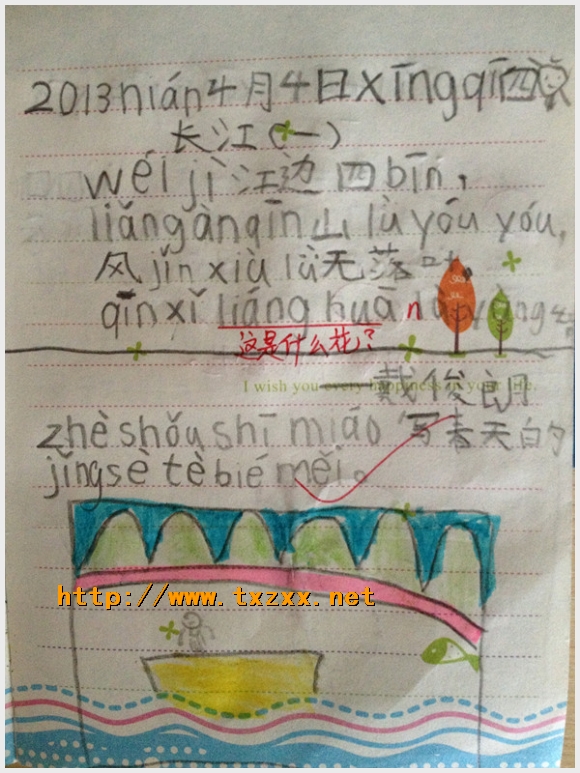 2013nián4月4日xīngqī四
长江(一)
wéi jì 江边 四 bīn,
liǎng àn qīn 山 lù yóu yóu,
风 jǐn xiù lǜ 无 落 叶,
qīn xǐ liáng huā n
这是什么花?
I wish you every happiness in your life.
戴俊朗
zhè shǒu shī miáo 写春天的
jǐng sè tè bié měi。
http://www.txzxx.net